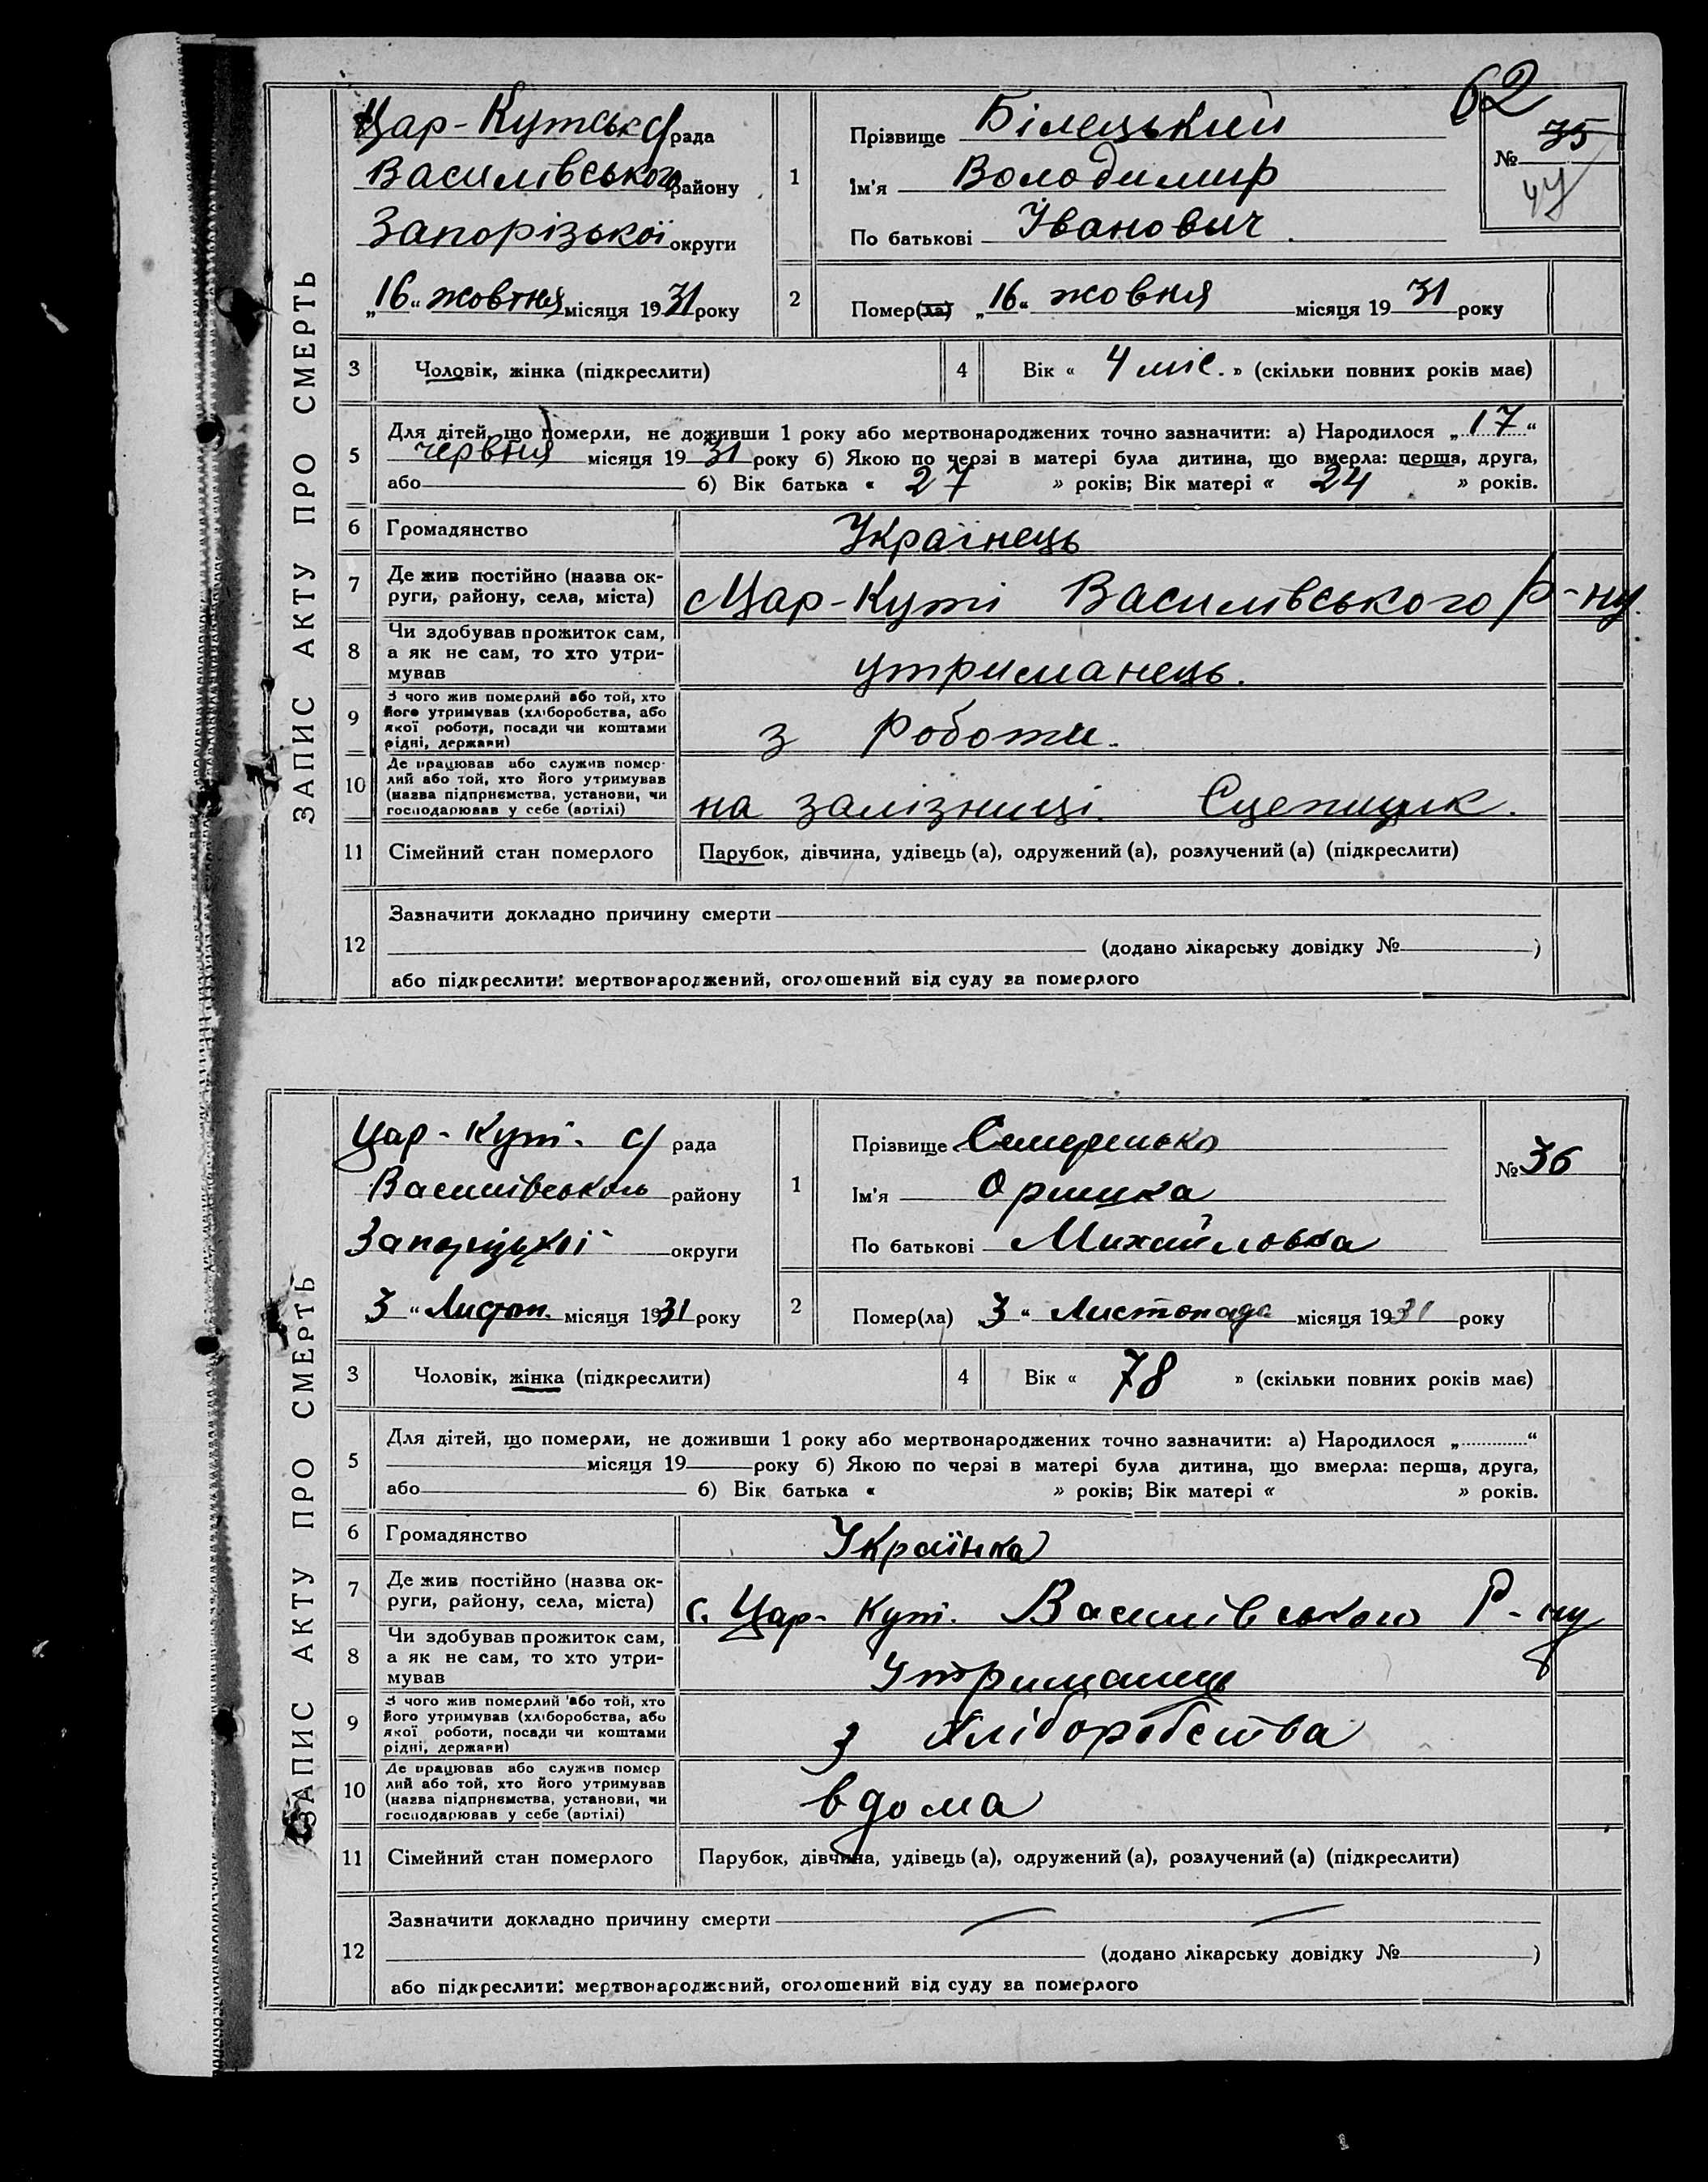 62
ЗАПИС АКТУ ПРО СМЕРТЬ
Цар-Кутськ с/рада
Василівського району
Запорізької округи
„16“ жовтня місяця 1931 року
1
Прізвище Білецький
Ім'я Володимир
По батькові Іванович
№ 35
44
2
Помер(ла) „16“ жовня місяця 1931 року
3
Чоловік, жінка (підкреслити)
4
Вік « 4 міс. » (скільки повних років має)
5
Для дітей, що померли, не доживши 1 року або мертвонароджених точно зазначити: а) Народилося „17“
червня місяця 1931 року б) Якою по черзі в матері була дитина, що вмерла: перша, друга,
або б) Вік батька « 27 » років; Вік матері « 24 » років.
6
Громадянство
Українець
7
Де жив постійно (назва ок-
руги, району, села, міста)
с Цар-Куті Василівського р-ну.
8
Чи здобував прожиток сам,
а як не сам, то хто утри-
мував
утриманець.
9
З чого жив померлий або той, хто
його утримував (хліборобства, або
якої роботи, посади чи коштами
рідні, держави)
з роботи.
10
Де працював або служив помер-
лий або той, хто його утримував
(назва підприємства, установи, чи
господарював у себе (артілі)
на залізниці. Сцепщик.
11
Сімейний стан померлого
Парубок, дівчина, удівець (а), одружений (а), розлучений (а) (підкреслити)
12
Зазначити докладно причину смерти
(додано лікарську довідку № )
або підкреслити: мертвонароджений, оголошений від суду за померлого
ЗАПИС АКТУ ПРО СМЕРТЬ
Цар-Кут. с/рада
Василівського району
Запоріцької округи
3 “ Листоп. місяця 1931 року
1
Прізвище
Ім'я Оришка
По батькові Михайловка
№ 36
2
Помер(ла) „3“ Листопада місяця 1931 року
3
Чоловік, жінка (підкреслити)
4
Вік « 78 » (скільки повних років має)
5
Для дітей, що померли, не доживши 1 року або мертвонароджених точно зазначити: а) Народилося „ “
місяця 19 року б) Якою по черзі в матері була дитина, що вмерла: перша, друга,
або б) Вік батька « » років; Вік матері « » років.
6
Громадянство
Українка
7
Де жив постійно (назва ок-
руги, району, села, міста)
с. Цар-Кут. Василівського Р-ну
8
Чи здобував прожиток сам,
а як не сам, то хто утри-
мував
Утриманець
9
З чого жив померлий або той, хто
його утримував (хліборобства, або
якої роботи, посади чи коштами
рідні, держави)
з хліборобства
10
Де працював або служив помер
лий або той, хто його утримував
(назва підприємства, установи, чи
господарював у себе (артілі)
вдома
11
Сімейний стан померлого
Парубок, дівчина, удівець (а), одружений (а), розлучений (а) (підкреслити)
12
Зазначити докладно причину смерти
(додано лікарську довідку № )
або підкреслити: мертвонароджений, оголошений від суду за померлого